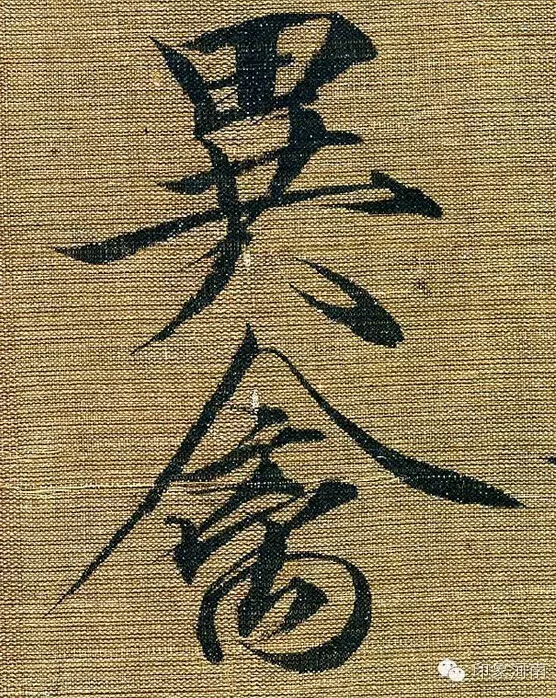 異禽
印象河南